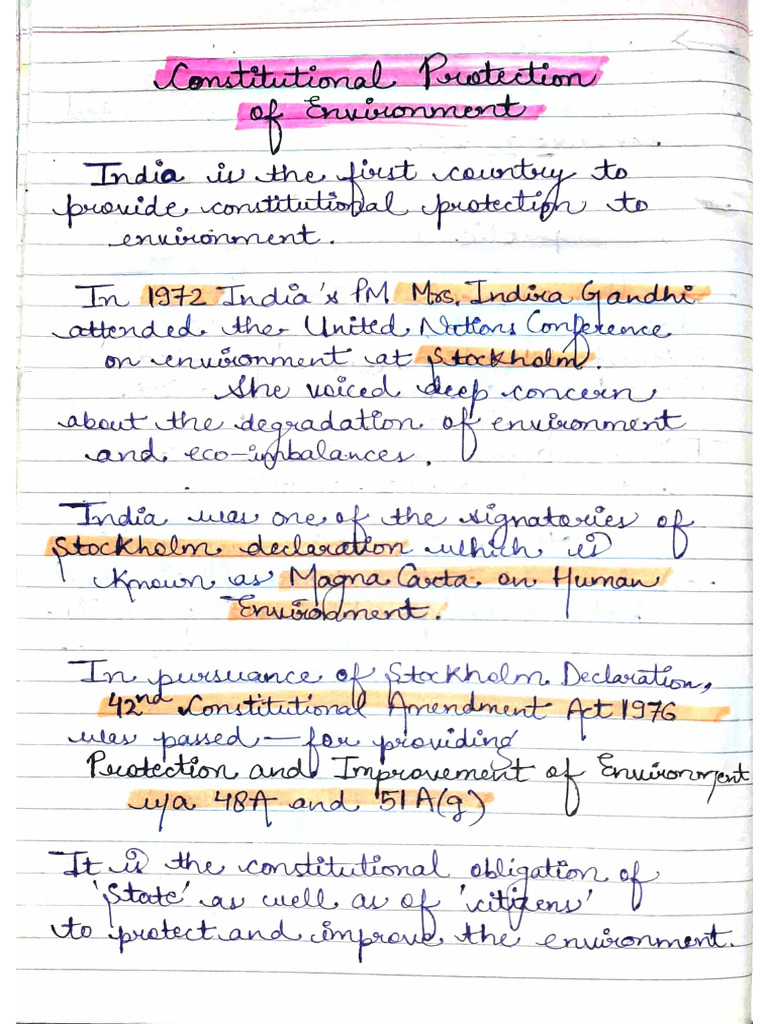 Constitutional Protection
of Environment
India is the first country to
provide constitutional protection to
environment.
In 1972 India's PM Mrs. Indira Gandhi
attended the United Nations Conference
on environment at Stockholm.
She voiced deep concern
about the degradation of environment
and eco-imbalances.
India was one of the signatories of
Stockholm declaration which is
known as Magna Carta on Human
Environment.
In pursuance of Stockholm Declaration,
42nd Constitutional Amendment Act 1976
was passed — for providing
Protection and Improvement of Environment
u/a 48A and 51A(g)
It is the constitutional obligation of
'State' as well as of 'citizens'
to protect and improve the environment.